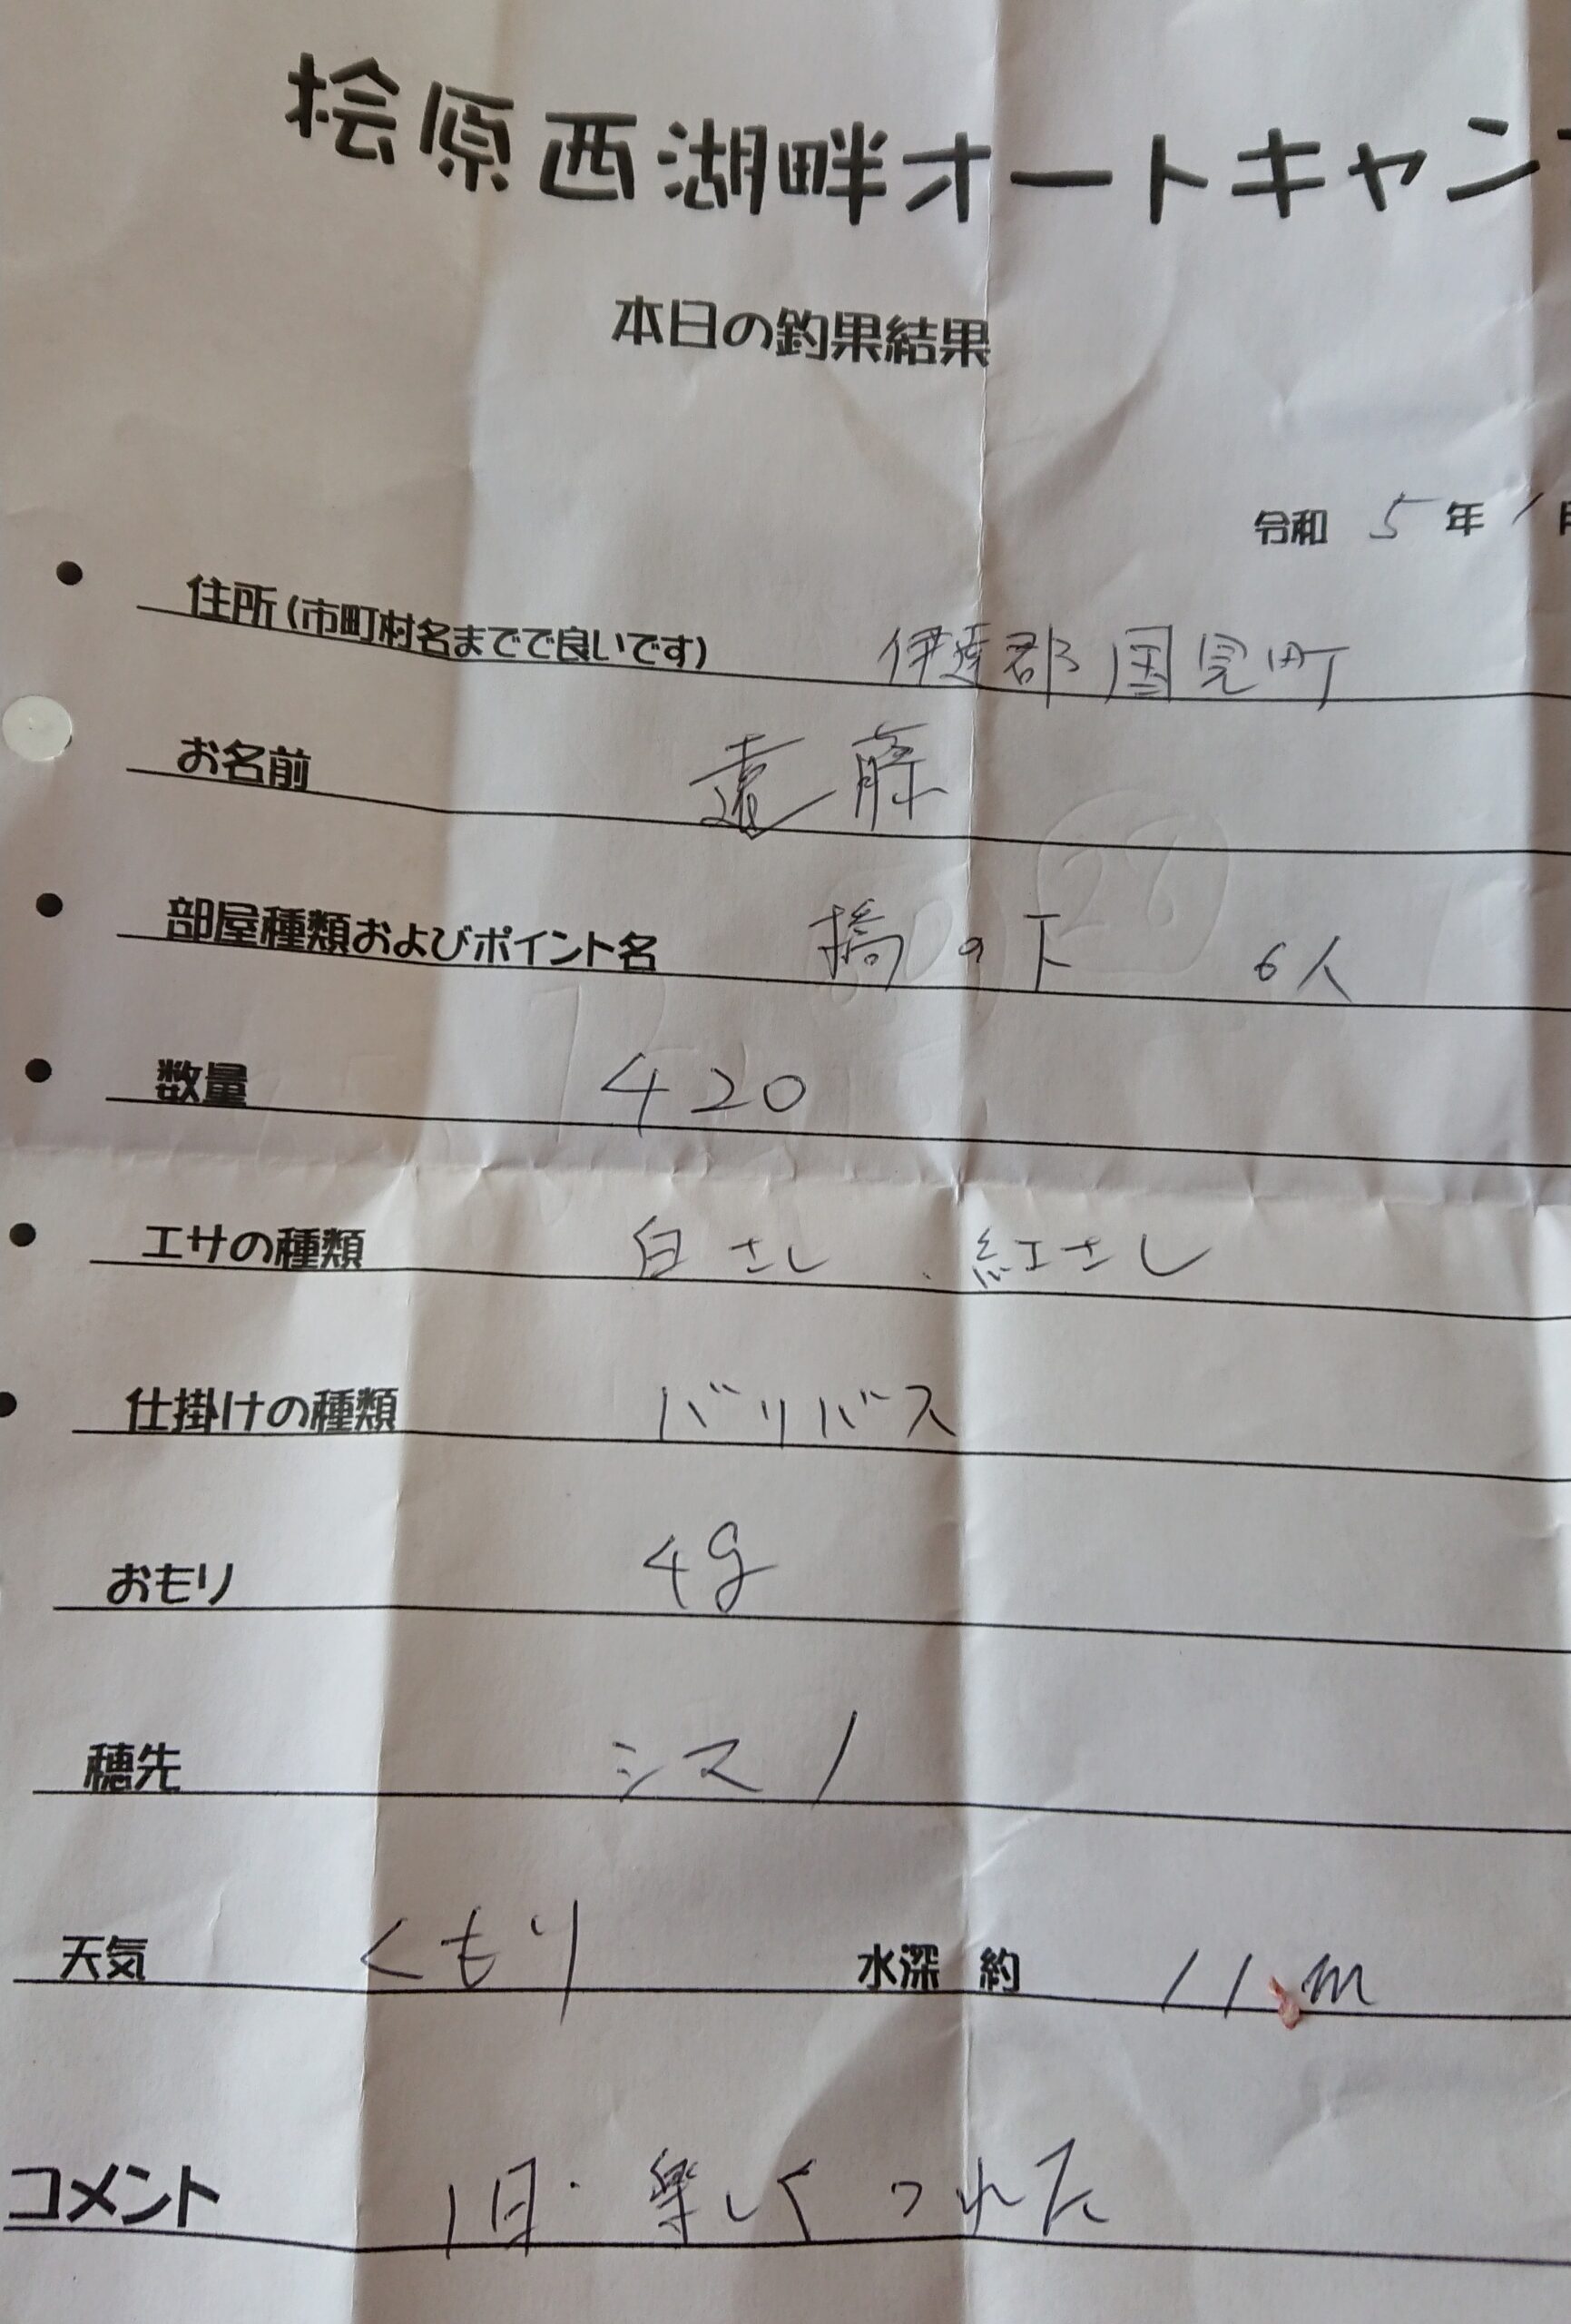 桧原西湖畔オートキャン
本日の釣果結果
令和 5 年 1 月
住所(市町村名までで良いです) 伊達郡国見町
お名前 遠藤
部屋種類およびポイント名 橋の下 6人
数量 420
エサの種類 白さし 、紅さし
仕掛けの種類 バリバス
おもり 4g
穂先 シマノ
天気 くもり 水深 約 11 m
コメント 1日・楽しくつれた